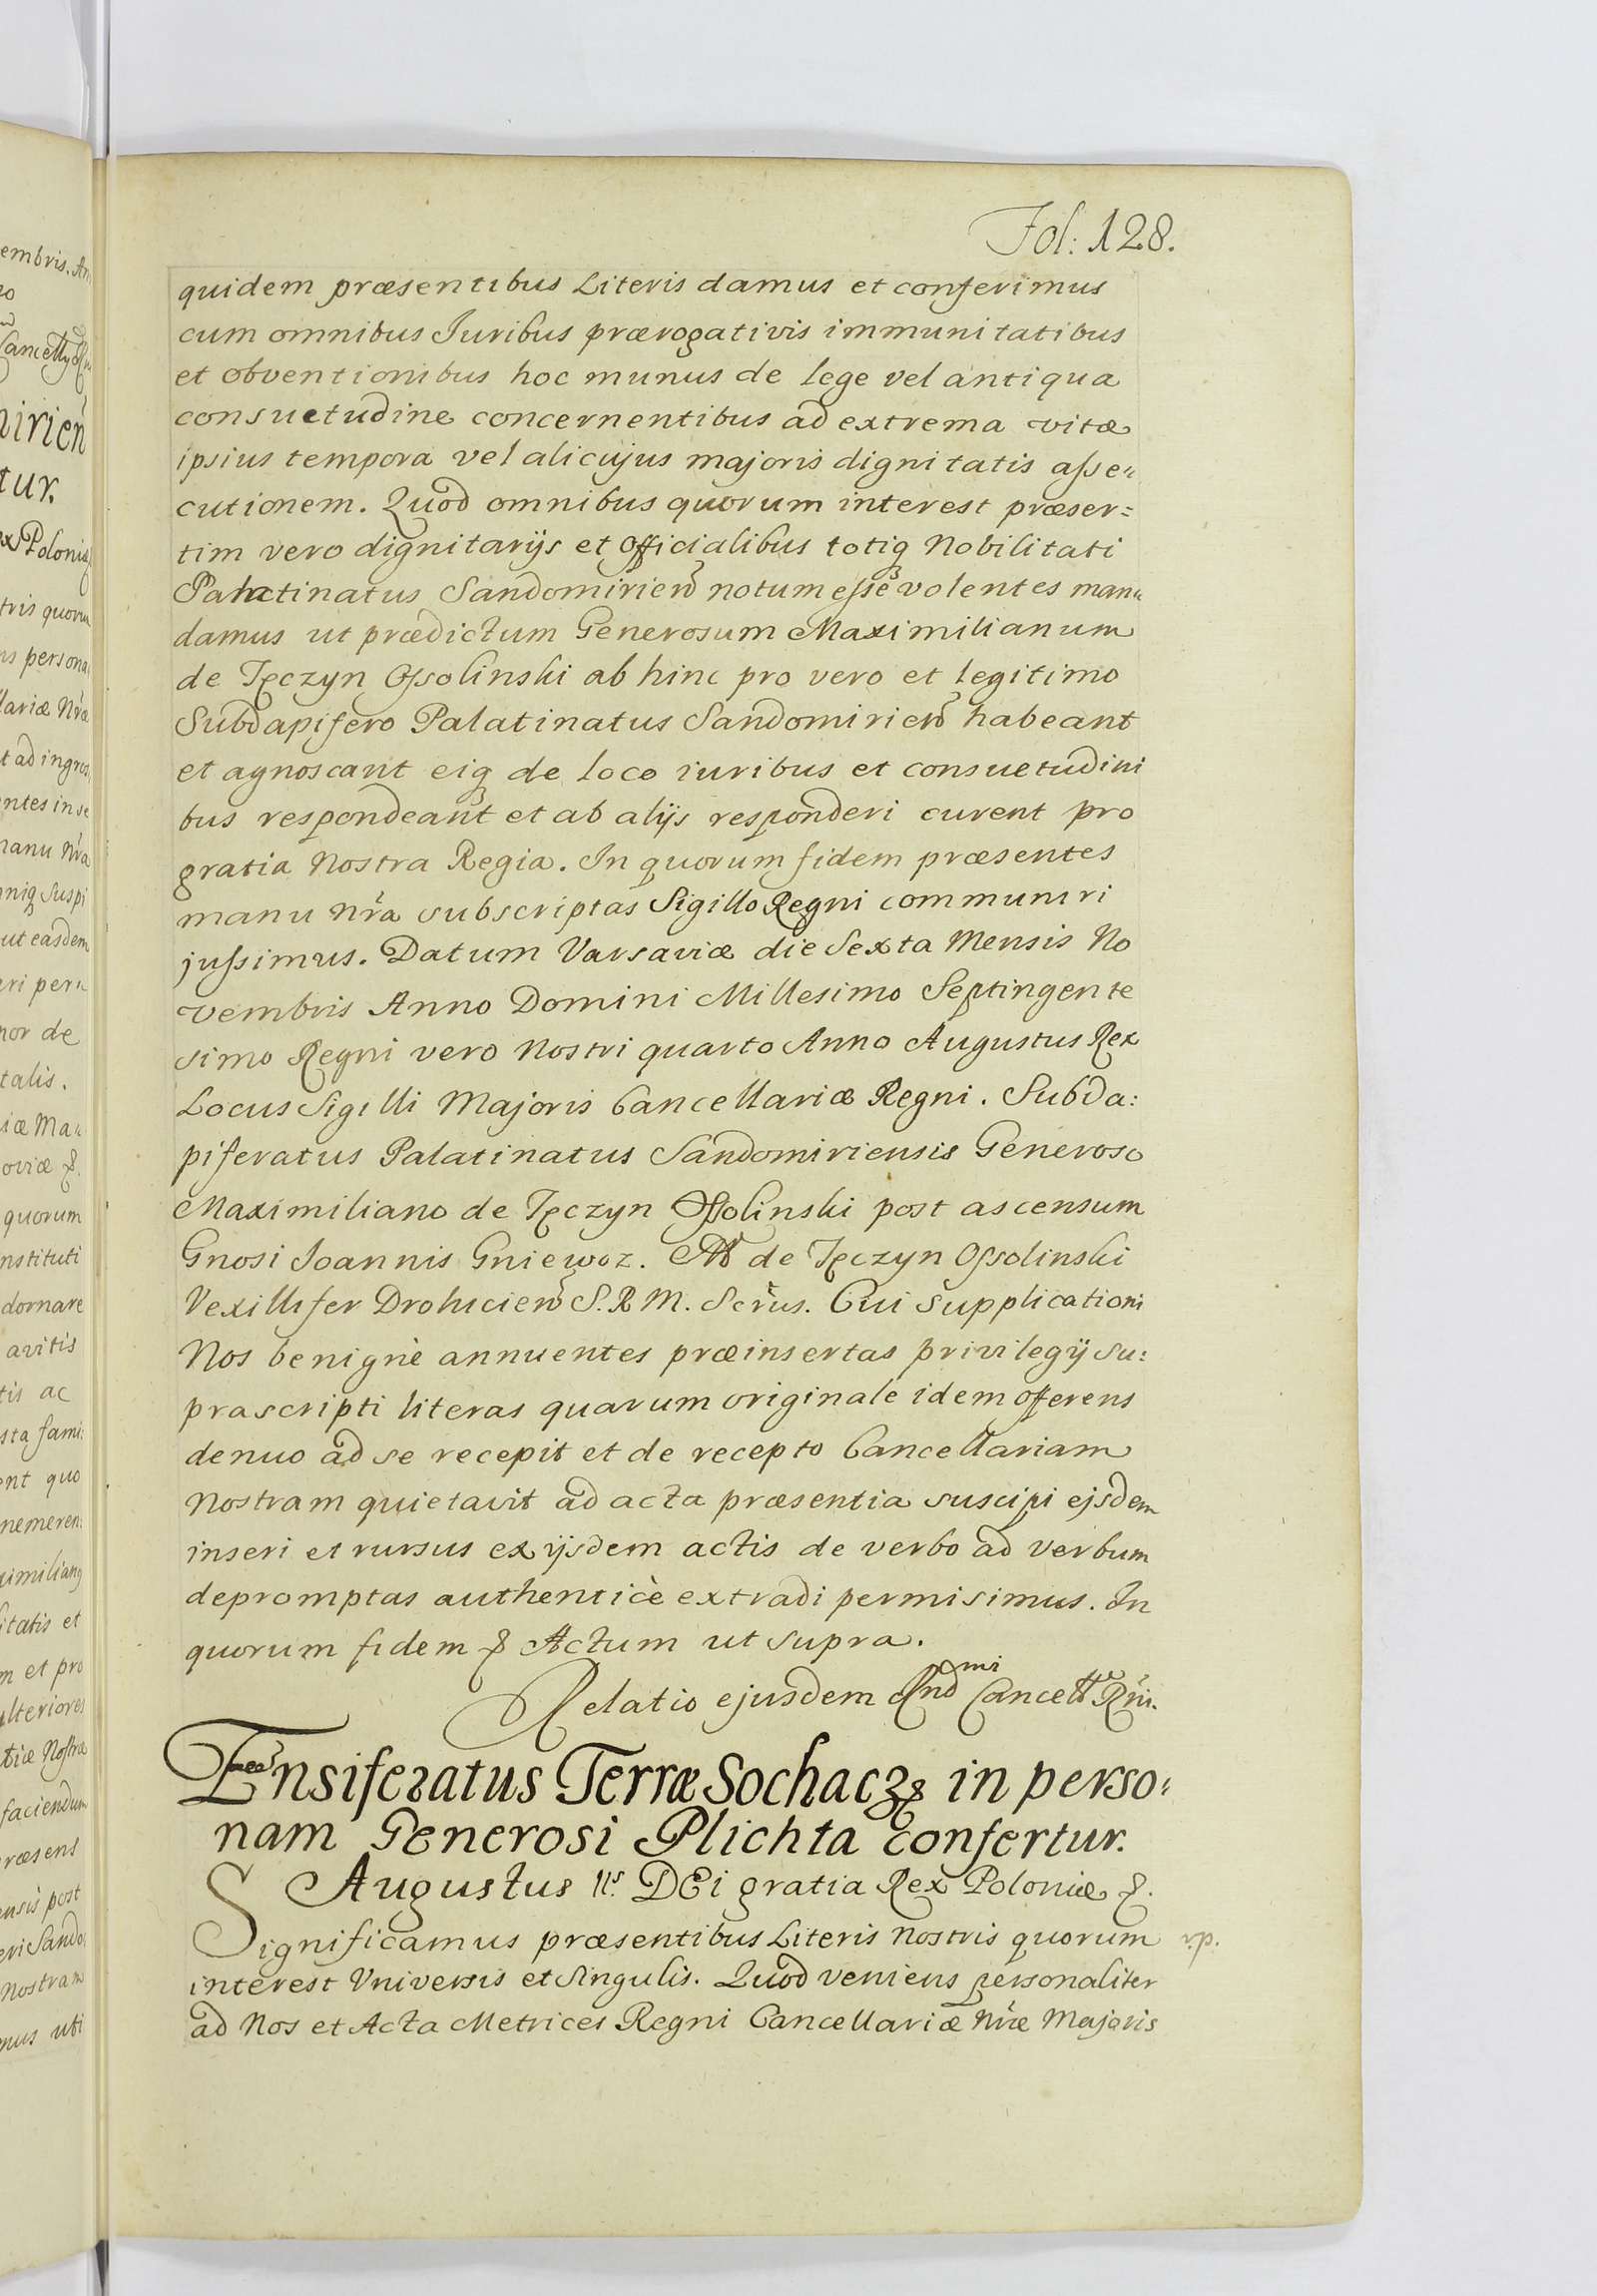 Fol: 128.
quidem præsentibus Literis damus et conferimus
cum omnibus Iuribus prærogativis immunitatibus
et obventionibus hoc munus de lege vel antiqua
consuetudine concernentibus ad extrema vitæ
ipsius tempora vel alicujus majoris dignitatis asse„
cutionem. Quod omnibus quorum interest præser=
tim vero dignitarijs et Officialibus totiq Nobilitati
Palatinatus Sandomirien notum esse volentes man„
damus ut prædictum Generosum Maximilianum
de Tęczyn Ossolinski ab hinc pro vero et legitimo
Subdapifero Palatinatus Sandomirien habeant
et agnoscant eiq de loco iuribus et consuetudini
bus respondeant et ab alijs responderi curent pro
gratia Nostra Regia. In quorum fidem præsentes
manu nra subscriptas Sigillo Regni communiri
jussimus. Datum Varsaviæ die Sexta Mensis No
vembris Anno Domini Millesimo Septingente
simo Regni vero Nostri quarto Anno Augustus Rex
Locus Sigilli Majoris Cancellariæ Regni. Subda:
piferatus Palatinatus Sandomiriensis Generoso
Maximiliano de Tęczyn Ossolinski post ascensum
Gnosi Ioannis Gniewoz. de Tęczyn Ossolinski
Vexillifer Drohicien S. R M. Scrus. Cui supplicationi
Nos benignè annuentes præinsertas privilegij su:
prascripti literas quarum originale idem offerens
denuo ad se recepit et de recepto Cancellariam
Nostram quietavit ad acta præsentia suscipi ejsdem
inseri et rursus ex ijsdem actis de verbo ad verbum
depromptas authenticè extradi permisimus. In
quorum fidem & Actum ut supra.
Relatio ejusdem Rndmi Cancell Rni.
Ensiferatus Terræ Sochacz& in perso„
nam Generosi Plichta confertur.
Augustus IIs. DEi gratia Rex Poloniæ &.
Significamus præsentibus Literis Nostris quorum
interest Universis et Singulis. Quod veniens personaliter
ad Nos et Acta Metrices Regni Cancellariæ Nræ Majoris